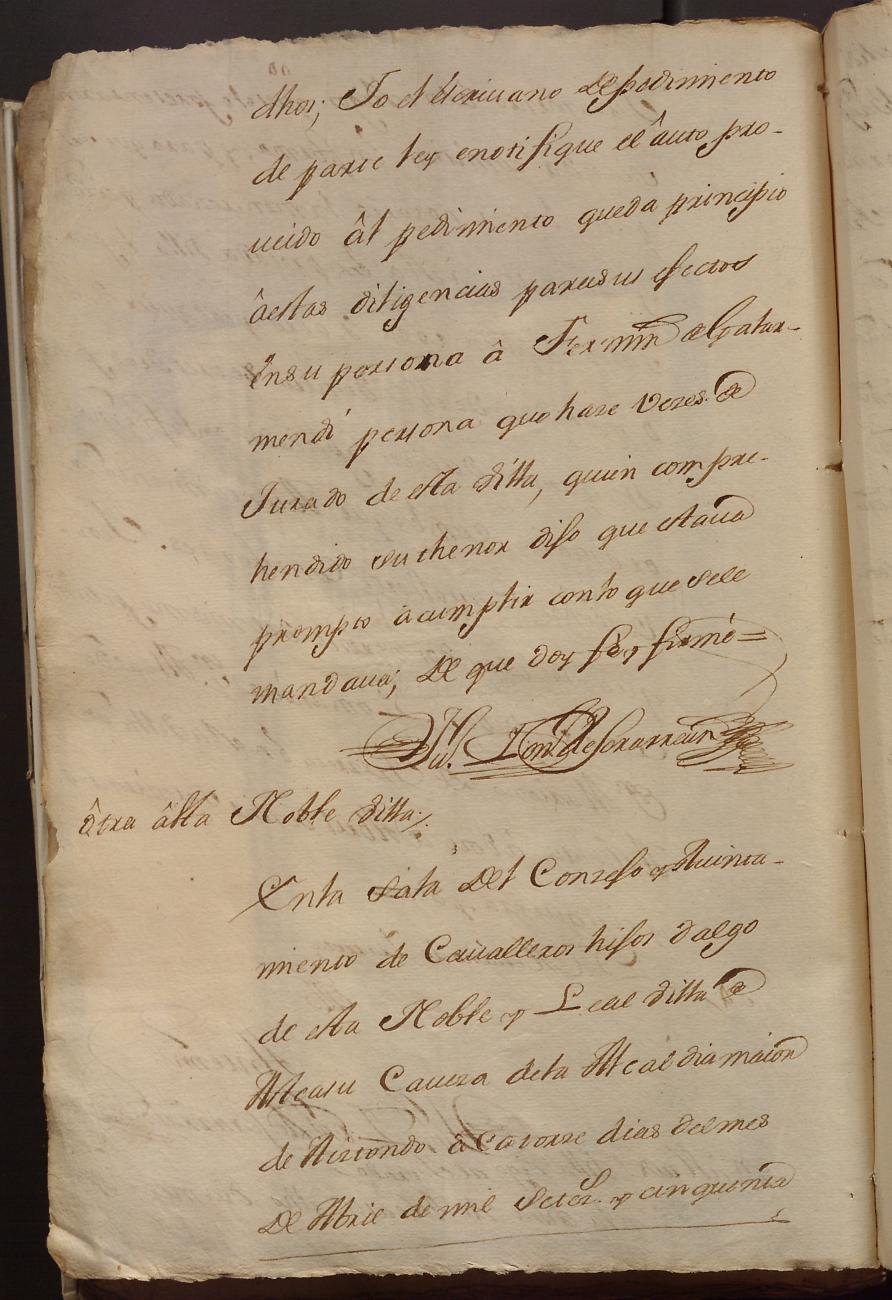 dhos; Yo el escriuano de pedimiento
de parte ley enotifique el âuto pro-
ueido âl pedimiento queda principio
âestas diligencias parasus efectos
ensu persona â Fermin de Gatar-
mendi persona que haze Vezes de
Jurado de esta Villa, quien compre-
hendido su thenor dijo que estaua
prompto acumplir conlo que sele
mandaua; De que doy fe, y firmé=
ôtra âlla Noble Villa;
Enla Sala Del Conzejo y Auinta-
miento de Caualleros hijos dalgo
de esta Noble y Leal Villa de
Azcasu Caueza dela Alcaldia maior
de Aiztondo â Catorze dias delmes
De Abril de mil Setez.s y cinquenta